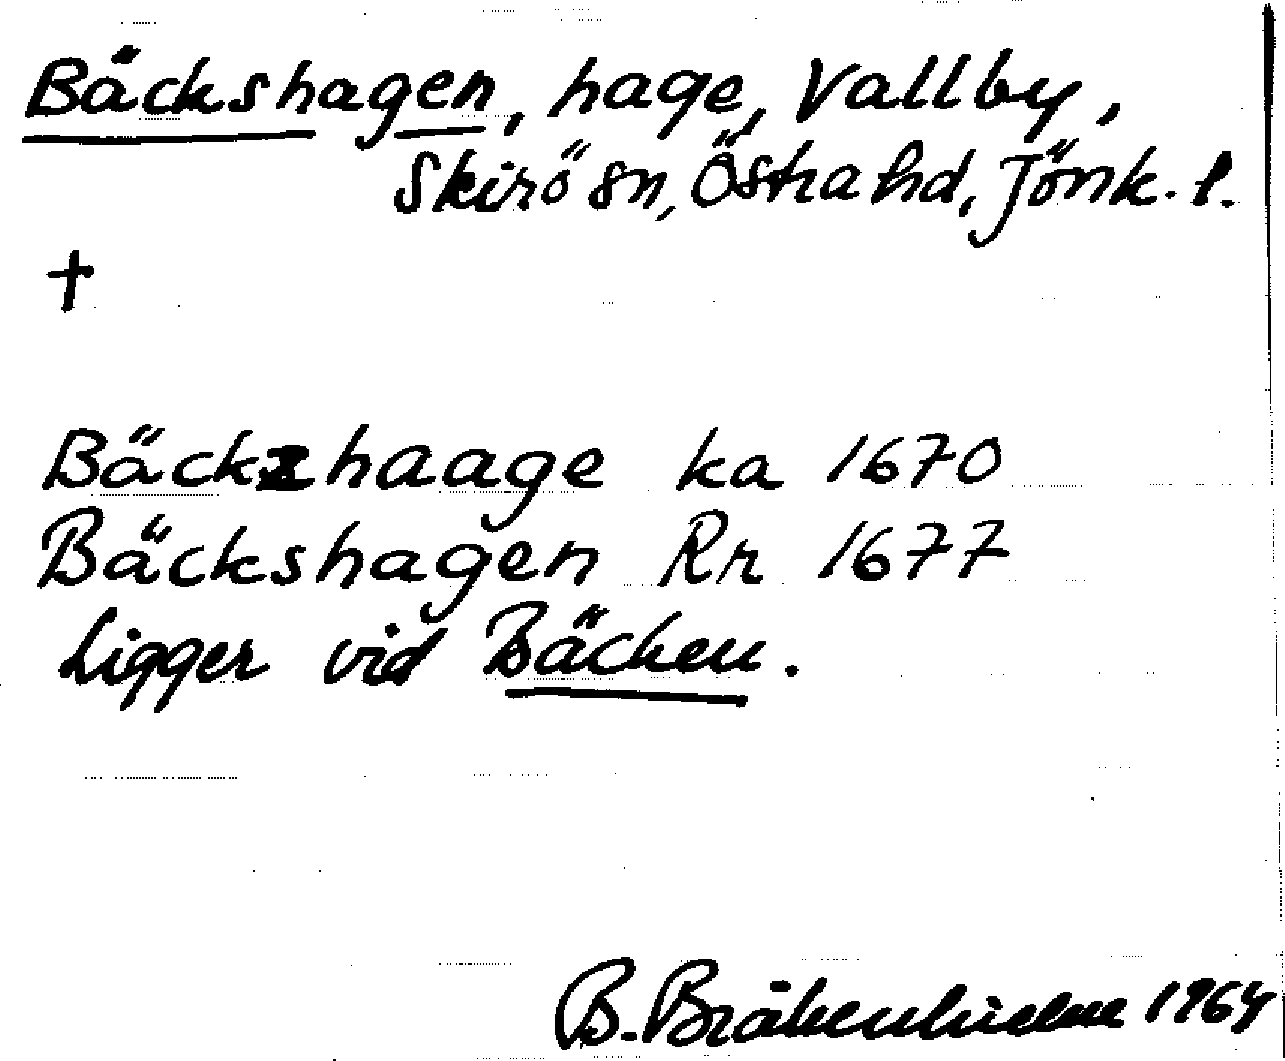 Bäckshagen, hage, Vallby,
Skirö sn, Östra hd, Jönk. l.
†
Bäckzhaage ka 1670
Bäckshagen Rr 1677
Ligger vid Bäcken.
B. Bråkenhielm 1964